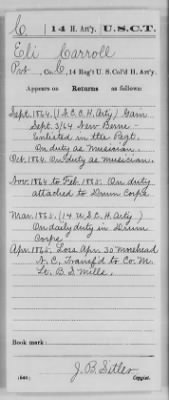 C | 14 H. Art'y. | U.S.C.T.
Eli Carroll
Pvt, Co. C, 14 Reg't U. S. Col'd H. Art'y.
Appears on Returns as follows:
Sept. 1864. (1 N.C.C.H. Arty) Gain
Sept. 3/64 New Berne -
Enlisted in the Regt.
On duty as Musician.
Oct. 1864. On duty as musician.
Nov. 1864 to Feb. 1865. On duty
attached to Drum Corps
Mar. 1865. (14 U.S.C.H. Arty)
On daily duty in Drum
Corps
Apr. 1865. Loss Apr. 30 Morehead
N.C., Transf'd to Co. M.
Lt. B. S. Mills.
Book mark:
J. B. Sitler
Copyist.